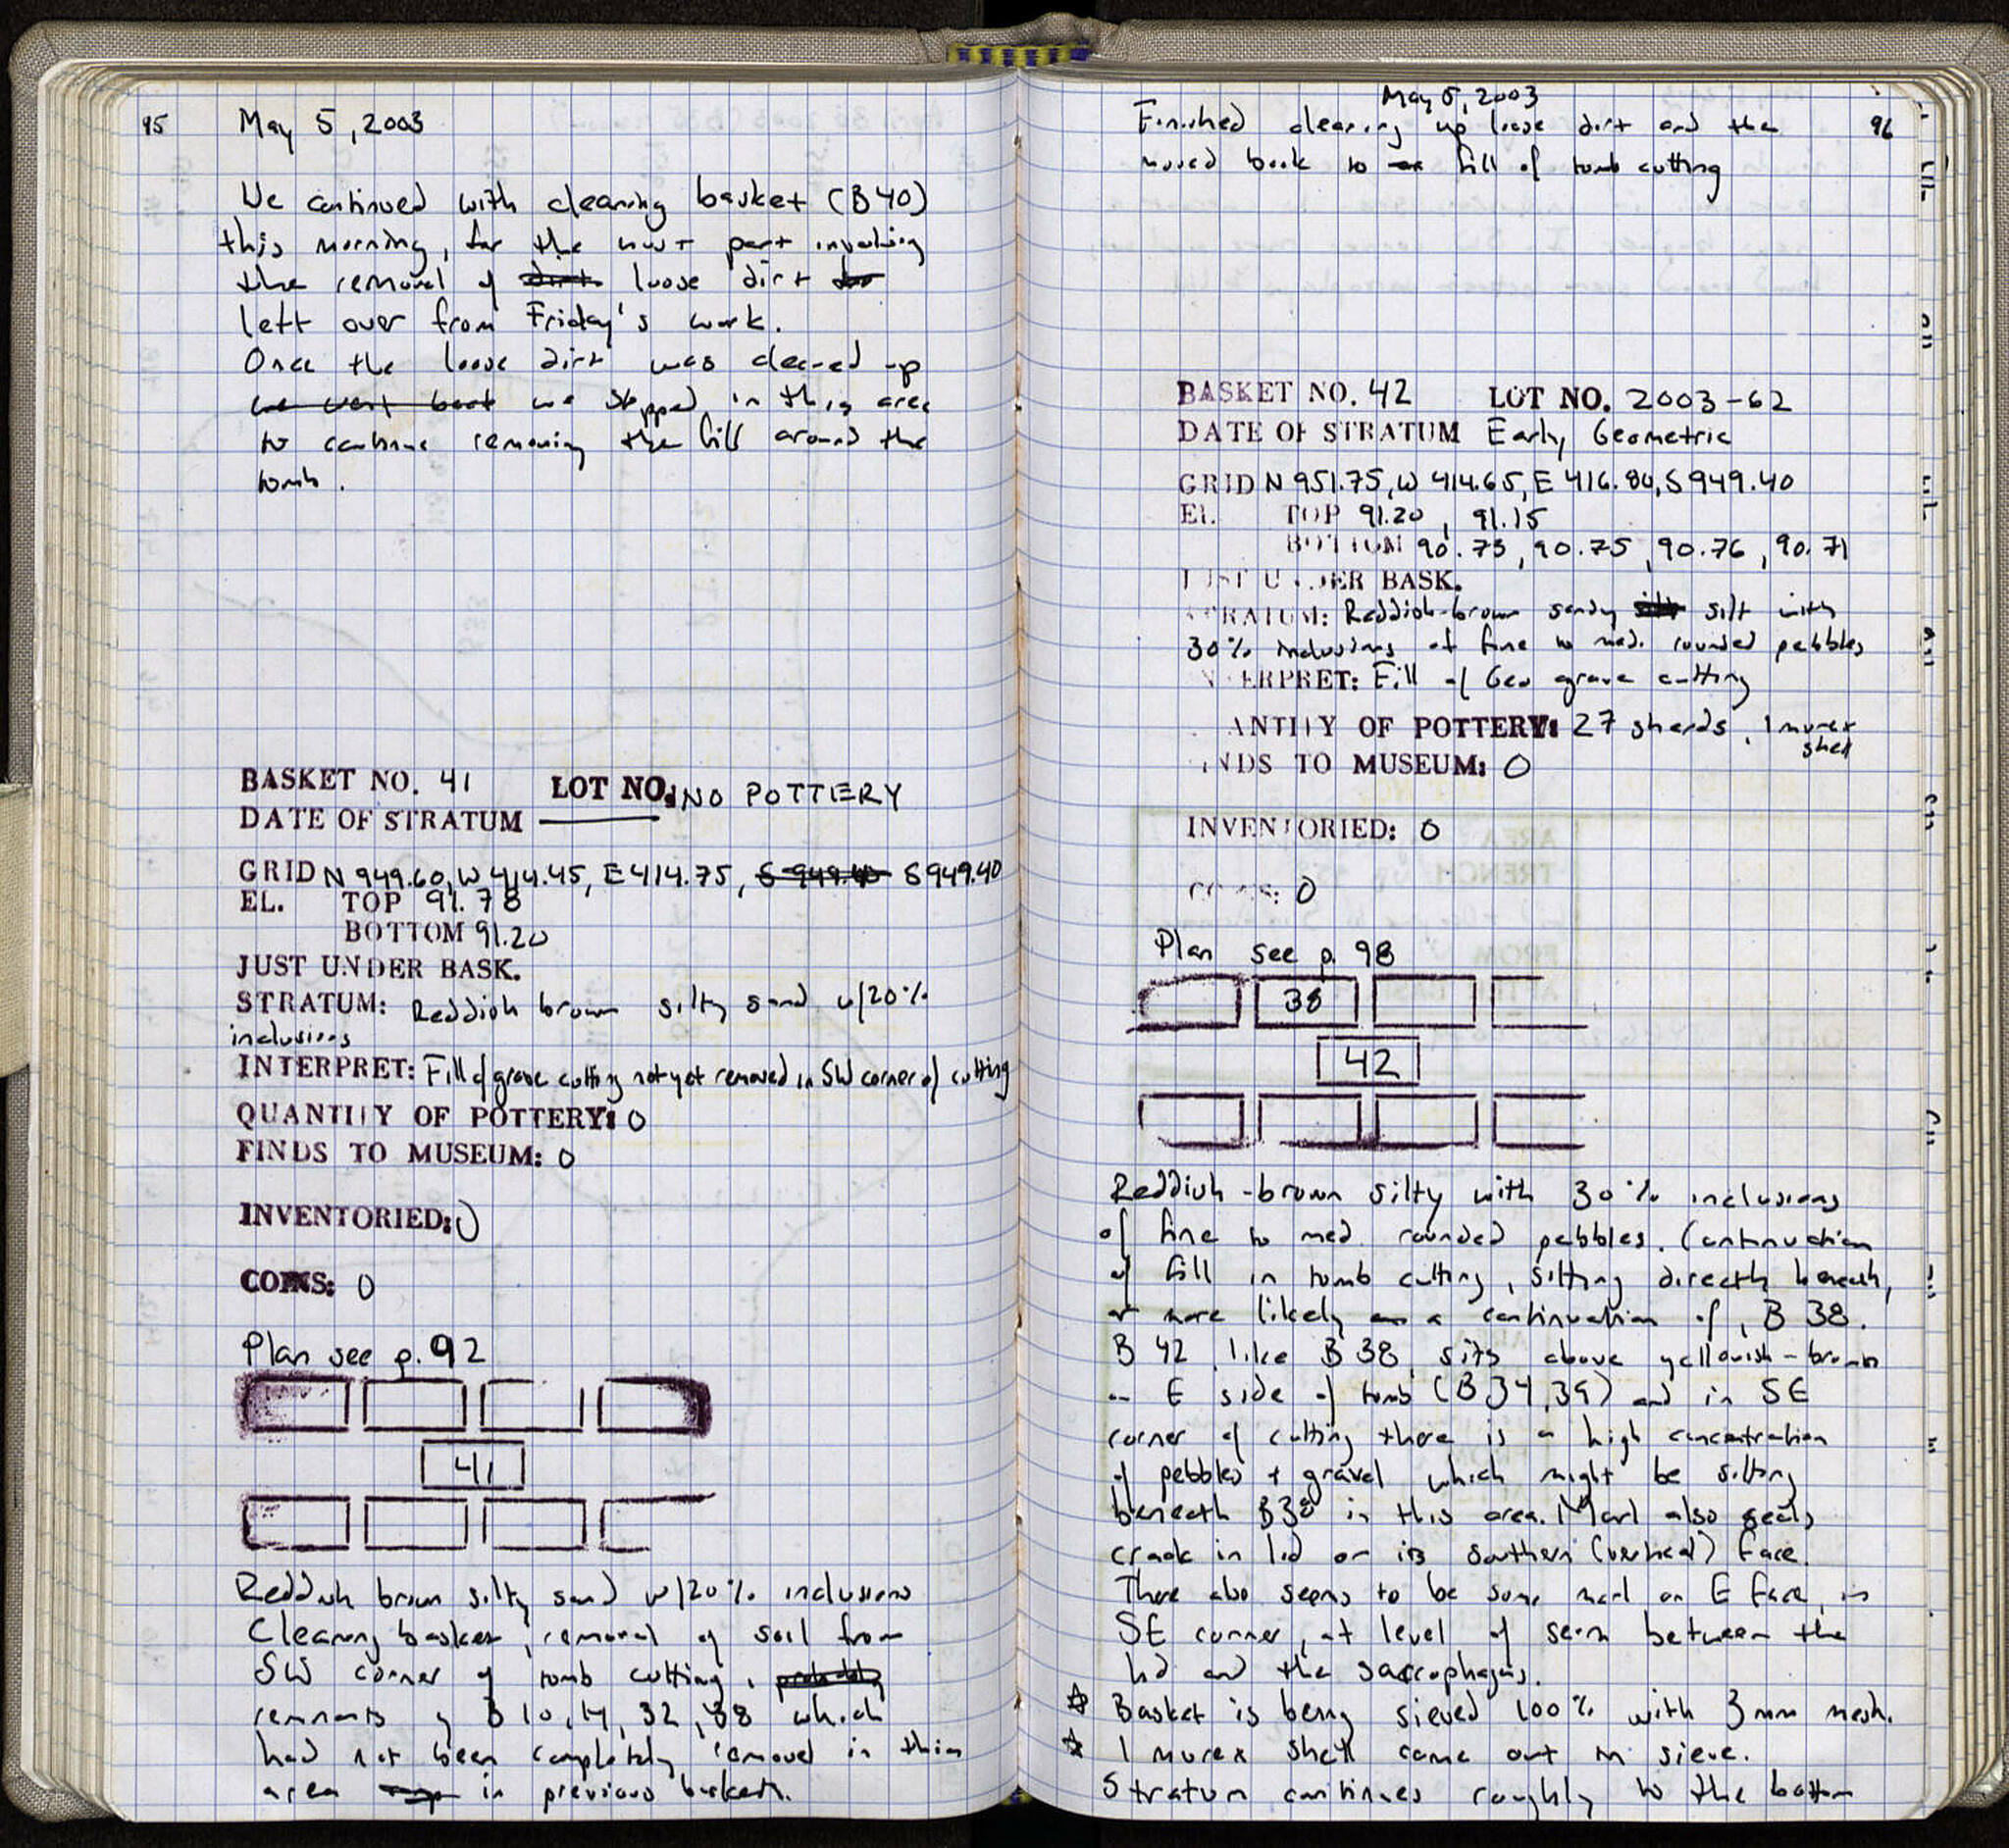 95
May 5, 2003
We continued with cleaning basket (B40)
this morning, for the most part involving
the removal of dirt loose dirt for
left over from Friday's work.
Once the loose dirt was cleared up
we went back we stopped in this area
to continue removing the fill around the
tomb.
BASKET NO. 41 LOT NO. NO POTTERY
DATE OF STRATUM ———
GRID N 949.60, W 414.45, E 414.75, S 949.40 S 949.40
EL. TOP 91.78
BOTTOM 91.20
JUST UNDER BASK.
STRATUM: Reddish brown silty sand w/20%
inclusions
INTERPRET: Fill of grave cutting not yet removed in SW corner of cutting
QUANTITY OF POTTERY: 0
FINDS TO MUSEUM: 0
INVENTORIED: 0
COINS: 0
Plan see p. 92
41
Reddish brown silty sand w/20% inclusions
Cleaning basket, removal of soil from
SW corner of tomb cutting, probably
remnants of B 10, 14, 32, 38 which
had not been completely removed in this
area in previous baskets.
May 5, 2003
96
Finished cleaning up loose dirt and the
moved back to fill of tomb cutting
BASKET NO. 42 LOT NO. 2003-62
DATE OF STRATUM Early Geometric
GRID N 951.75, W 414.65, E 416.80, S 949.40
EL. TOP 91.20, 91.15
BOTTOM 90.73, 90.75, 90.76, 90.71
JUST UNDER BASK.
STRATUM: Reddish-brown sandy silt silt with
30% inclusions of fine to med. rounded pebbles
INTERPRET: Fill of Geo grave cutting
QUANTITY OF POTTERY: 27 sherds, 1 murex
shell
FINDS TO MUSEUM: 0
INVENTORIED: 0
COINS: 0
Plan see p. 98
38
42
Reddish-brown silty with 30% inclusions
of fine to med. rounded pebbles. Continuation
of fill in tomb cutting, sitting directly beneath,
or more likely as a continuation of, B 38.
B 42, like B 38, sits above yellowish-brown
on E side of tomb (B 34, 39) and in SE
corner of cutting there is a high concentration
of pebbles + gravel which might be sitting
beneath B38 in this area. Marl also seals
crack in lid on its southern (overhead) face.
There also seems to be some marl on E face, in
SE corner, at level of seam between the
lid and the sarcophagus.
☆ Basket is being sieved 100% with 3mm mesh.
☆ 1 murex shell came out in sieve.
Stratum continues roughly to the bottom